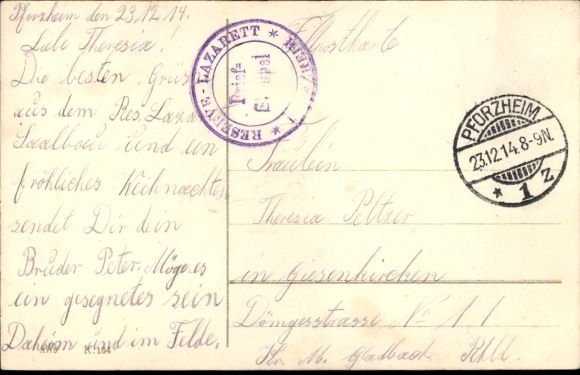 Pforzheim den 23.12.14.
Liebe Theresia!
Die besten Grüße
aus dem Res. Laza
Saalbau und ein
fröhliches Weihnachten
sendet Dir dein
Bruder Peter. Möge es
ein gesegnetes sein
Daheim und im Felde.
K.184
RESERVE-LAZARETT
Brief-
Stempel
Feldpostkarte
PFORZHEIM
23.12.14.8-9N.
* 1 Z
Fräulein
Theresia Peltzer
in Giesenkirchen
Dömgesstrasse No 11
Kr. M. Gladbach Rhld.